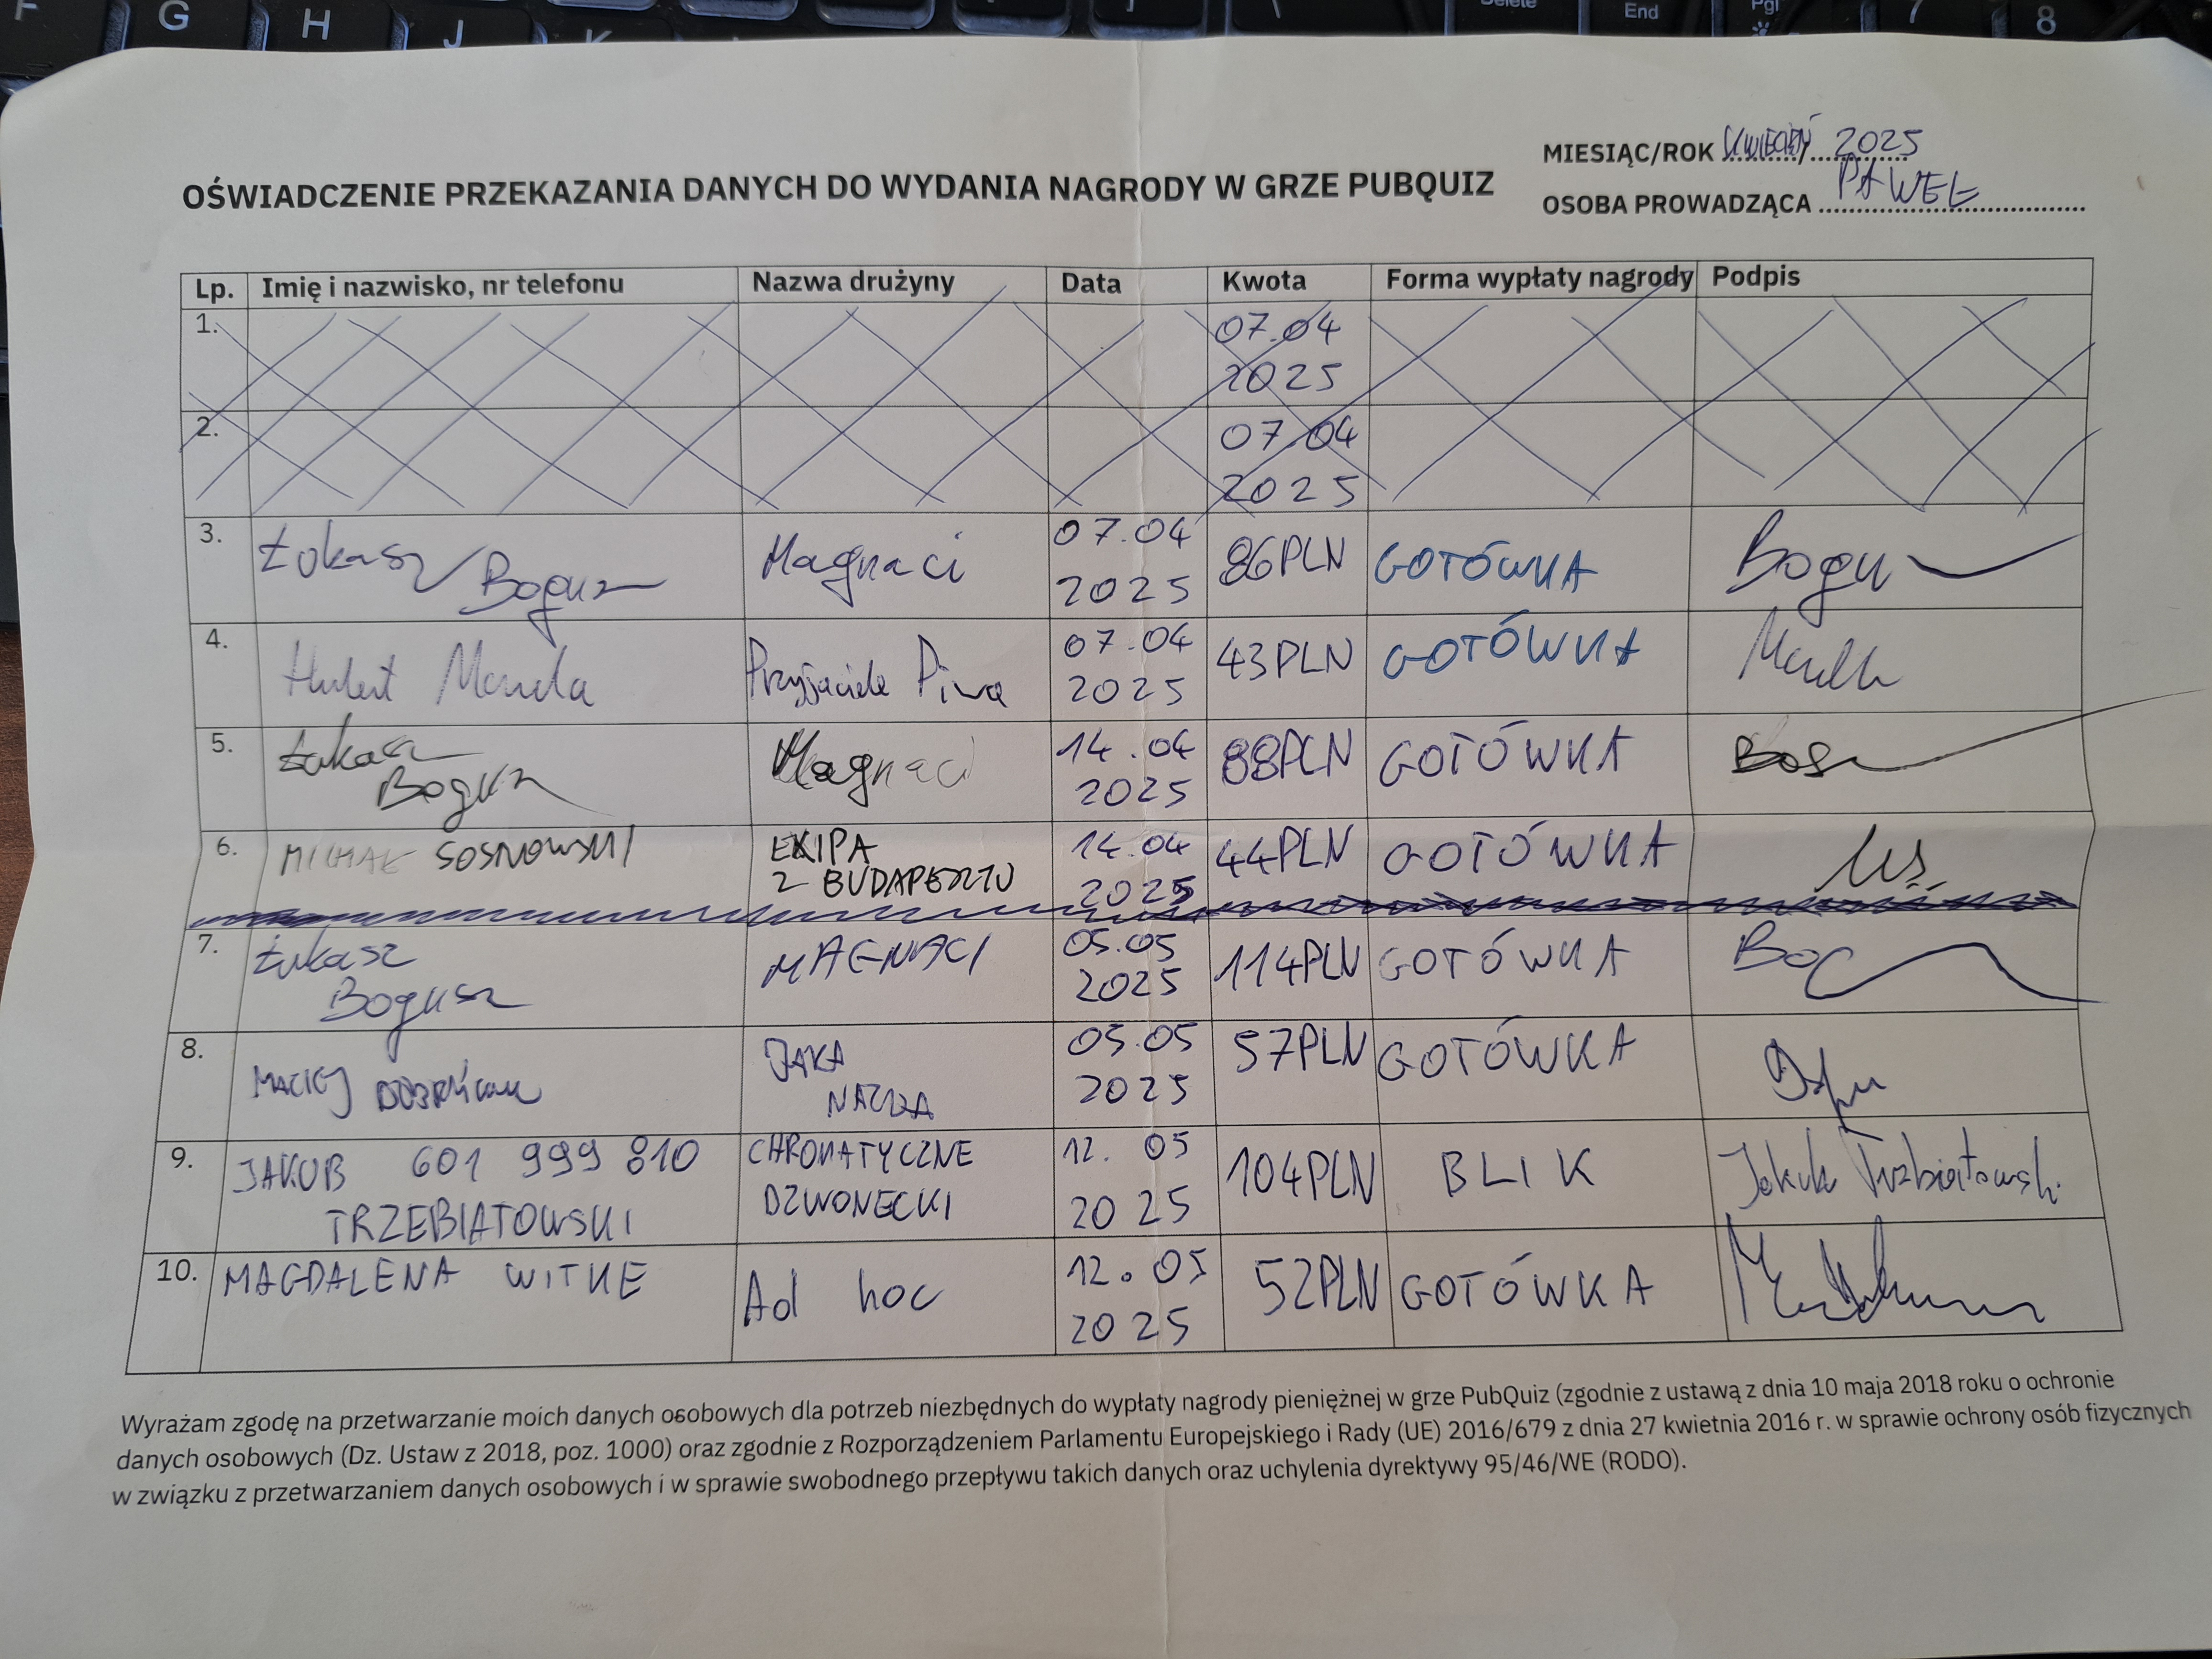 G H J K Delete End PgI 7 8
MIESIĄC/ROK KWIECIEŃ/2025
OŚWIADCZENIE PRZEKAZANIA DANYCH DO WYDANIA NAGRODY W GRZE PUBQUIZ
OSOBA PROWADZĄCA PAWEŁ
Lp. Imię i nazwisko, nr telefonu Nazwa drużyny Data Kwota Forma wypłaty nagrody Podpis
1. 07.04
2025
2. 07.04
2025
3. Łukasz Bogusz Magnaci 07.04 2025 86PLN GOTÓWKA
4. Hubert Przyjaciele Piwa 07.04 2025 43PLN GOTÓWKA
5. Łukasz Magnaci 14.04 88PLN GOTÓWKA
Bogusz 2025
6. MICHAŁ SOSNOWSKI EKIPA 14.04 44PLN GOTÓWKA MS.
Z BUDAPESZTU 2025
7. Łukasz MAGNACI 05.05 114PLN GOTÓWKA
Bogusz 2025
8. MACIEJ JAKA 05.05 57PLN GOTÓWKA
NAZWA 2025
9. JAKUB 601 999 810 CHROMATYCZNE 12.05 104PLN BLIK Jakub Trzebiatowski
TRZEBIATOWSKI DZWONECKI 2025
10. MAGDALENA WITKE Ad hoc 12.05 52PLN GOTÓWKA
2025
Wyrażam zgodę na przetwarzanie moich danych osobowych dla potrzeb niezbędnych do wypłaty nagrody pieniężnej w grze PubQuiz (zgodnie z ustawą z dnia 10 maja 2018 roku o ochronie
danych osobowych (Dz. Ustaw z 2018, poz. 1000) oraz zgodnie z Rozporządzeniem Parlamentu Europejskiego i Rady (UE) 2016/679 z dnia 27 kwietnia 2016 r. w sprawie ochrony osób fizycznych
w związku z przetwarzaniem danych osobowych i w sprawie swobodnego przepływu takich danych oraz uchylenia dyrektywy 95/46/WE (RODO).